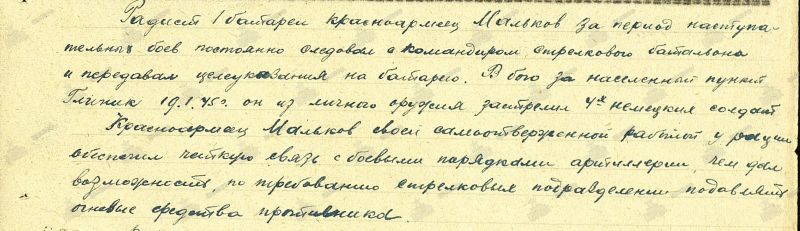 Радист 1 батареи красноармеец Мальков за период наступа-
тельных боев постоянно следовал с командиром стрелкового батальона
и передавал целеуказания на батарею. В бою за населенный пункт
Глиник 19.1.45г. он из личного оружия застрелил 4х немецких солдат
Красноармеец Мальков своей самоотверженной работой у рации
обеспечил четкую связь с боевыми порядками артиллерии, чем дал
возможность, по требованию стрелковых подразделений подавлять
огневые средства противника.